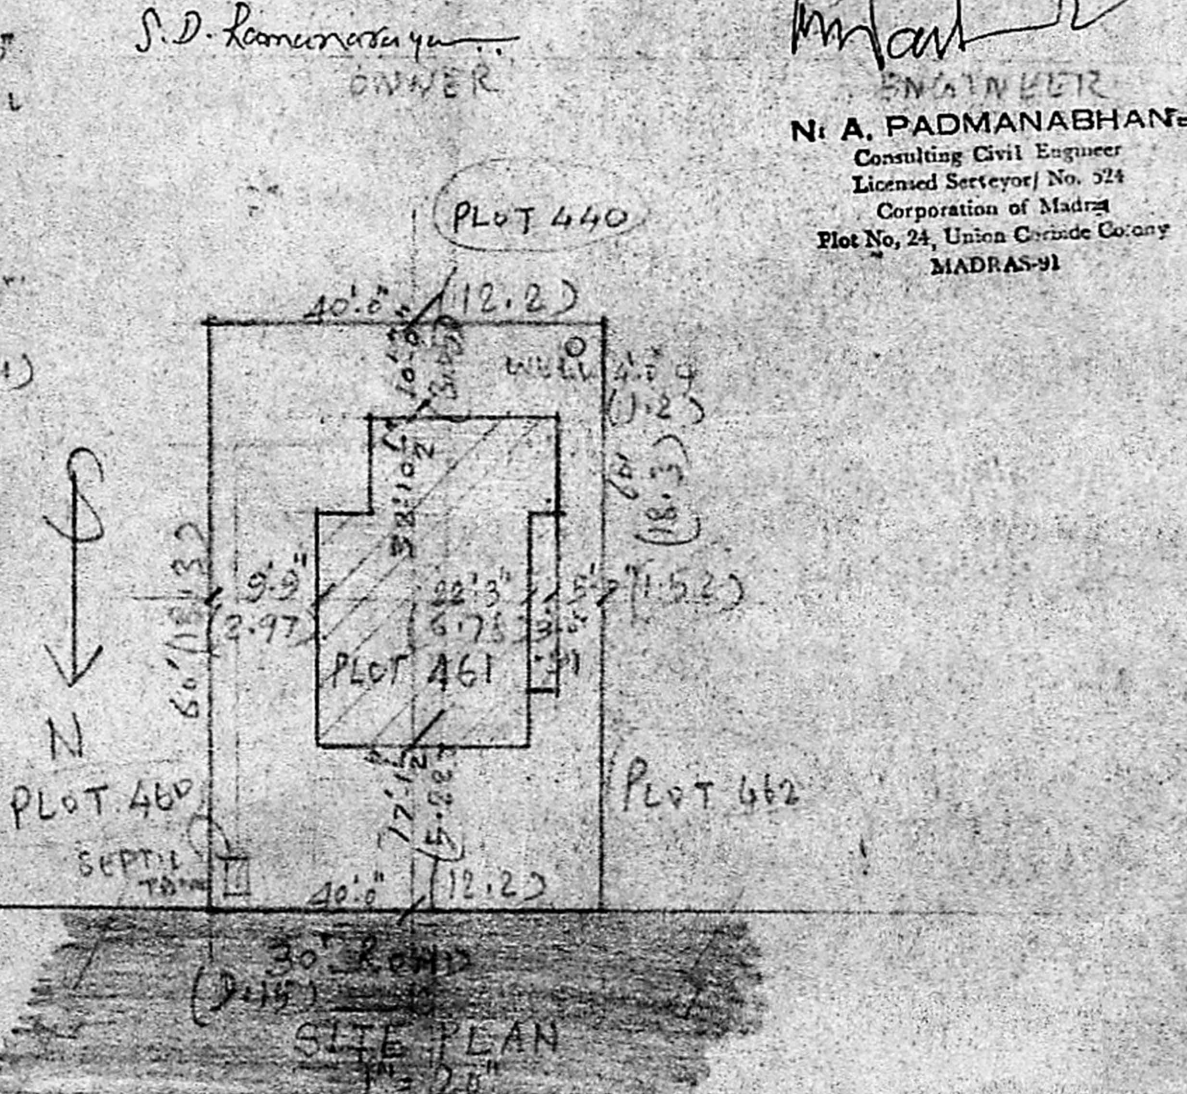 S. D. Ramanarayan
OWNER
ENGINEER
N. A. PADMANABHAN
Consulting Civil Engineer
Licensed Serveyor/ No. 524
Corporation of Madras
Plot No, 24, Union Carbide Colony
MADRAS-91
PLOT 440
40'.0" (12.2)
10'.0"
WELL 4'.0"
(1.2)
60'
(18.3)
60' (18.3)
9'.9" 22'.3" 5'.0" (1.52)
(2.97) (6.75)
PLOT 461
N
PLOT 460
PLOT 462
17'.1½"
SEPTIC
40'.0" (12.2)
30' ROAD
(9.15)
SITE PLAN